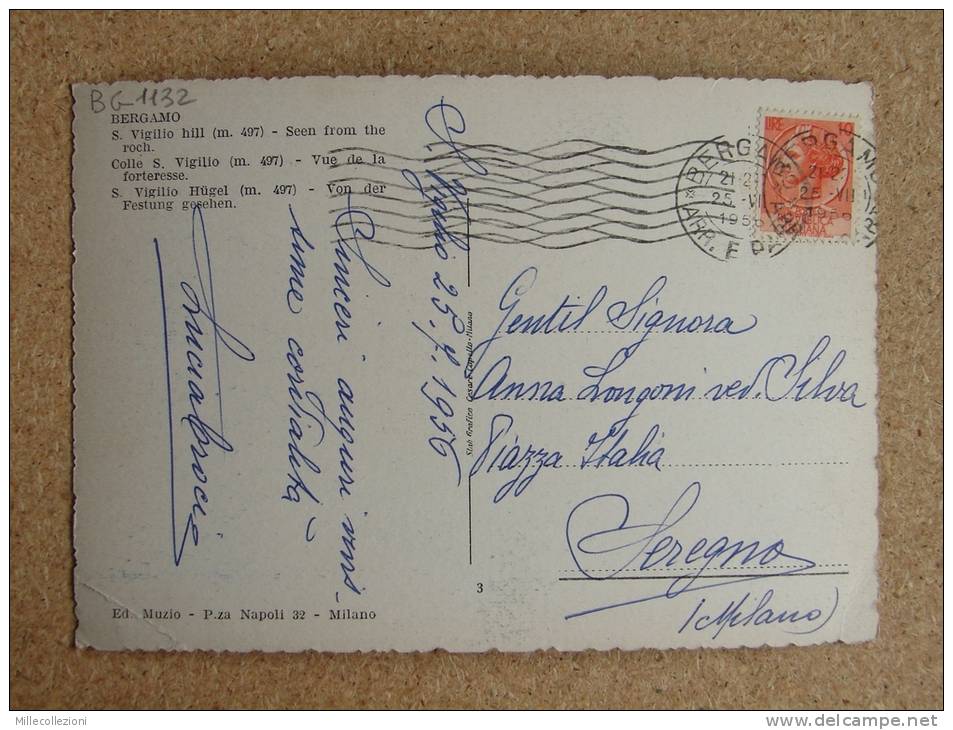 BG 1132
BERGAMO
S. Vigilio hill (m. 497) - Seen from the
roch.
Colle S. Vigilio (m. 497) - Vue de la
forteresse.
S. Vigilio Hügel (m. 497) - Von der
Festung gesehen.
S. Vigilio 25.7.1956
Sinceri auguri venis-
sime cordialità
Ed. Muzio - P.za Napoli 32 - Milano
Stab Grafico Cesare Capello-Milano
3
LIRE 10
BERGAMO
21-2
25 -VII
195
ARR. E P
Gentil Signora
Anna Longoni ved. Silva
Piazza Italia
Seregno
(Milano)
Millecollezioni
www.delcampe.net